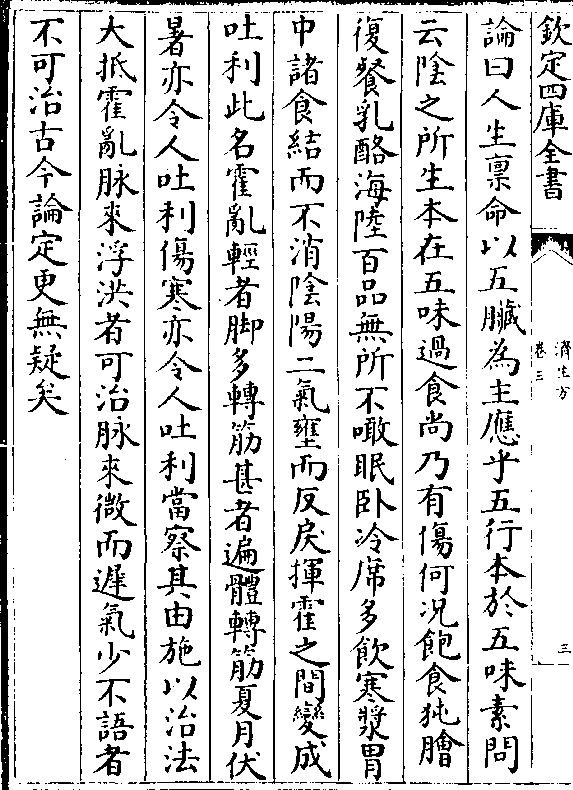 欽定四庫全書
濟生方
卷三
三
論曰人生禀命以五臟為主應乎五行本於五味素問
云陰之所生本在五味過食尚乃有傷何况飽食㹠膾
復餐乳酪海陸百品無所不噉眠卧冷席多飲寒漿胃
中諸食結而不消陰陽二氣壅而反戾揮霍之間變成
吐利此名霍亂輕者脚多轉筋甚者遍體轉筋夏月伏
暑亦令人吐利傷寒亦令人吐利當察其由施以治法
大抵霍亂脉來浮洪者可治脉來微而遲氣少不語者
不可治古今論定更無疑矣